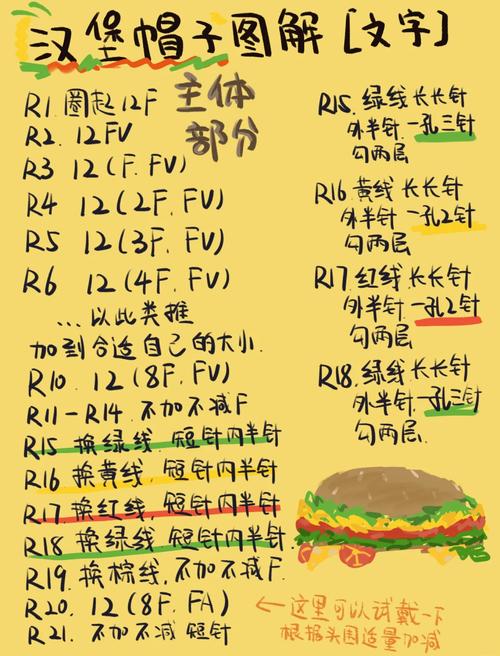 汉堡帽子图解[文字]
主体
部分
R1. 圈起12F
R2. 12FV
R3 12(F. FV)
R4 12(2F. FV)
R5 12(3F. FV)
R6 12(4F. FV)
...以此类推
加到合适自己的大小.
R10. 12(8F. FV)
R11-R14. 不加不减F
R15 换绿线. 短针内半针
R16 换黄线. 短针内半针
R17. 换红线. 短针内半针
R18 换绿线 短针内半针.
R19. 换棕线. 不加不减F.
R20. 12(8F. FA)
R21. 不加不减 短针
←这里可以试戴一下
根据头围适量加减
R15. 绿线 长长针
外半针 一孔三针
勾两层
R16 黄线 长长针
外半针 一孔2针
勾两层
R17. 红线. 长长针
外半针 一孔2针
勾两层
R18. 绿线 长长针
外半针 一孔三针
勾两层.